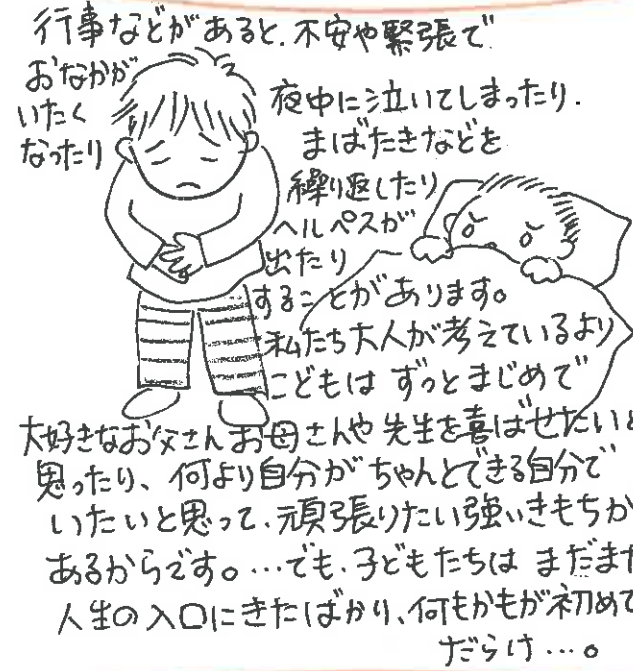 行事などがあると、不安や緊張で
おなかが
いたく
なったり
夜中に泣いてしまったり、
まばたきなどを
繰り返したり
ヘルペスが
出たり
することがあります。
私たち大人が考えているより
こどもは ずっとまじめで
大好きなお父さんお母さんや 先生を喜ばせたいと
思ったり、何より自分が ちゃんとできる自分で
いたいと思って、頑張りたい強いきもちが
あるからです。…でも、子どもたちは まだまだ
人生の入口にきたばかり、何もかもが初めて
だらけ…。